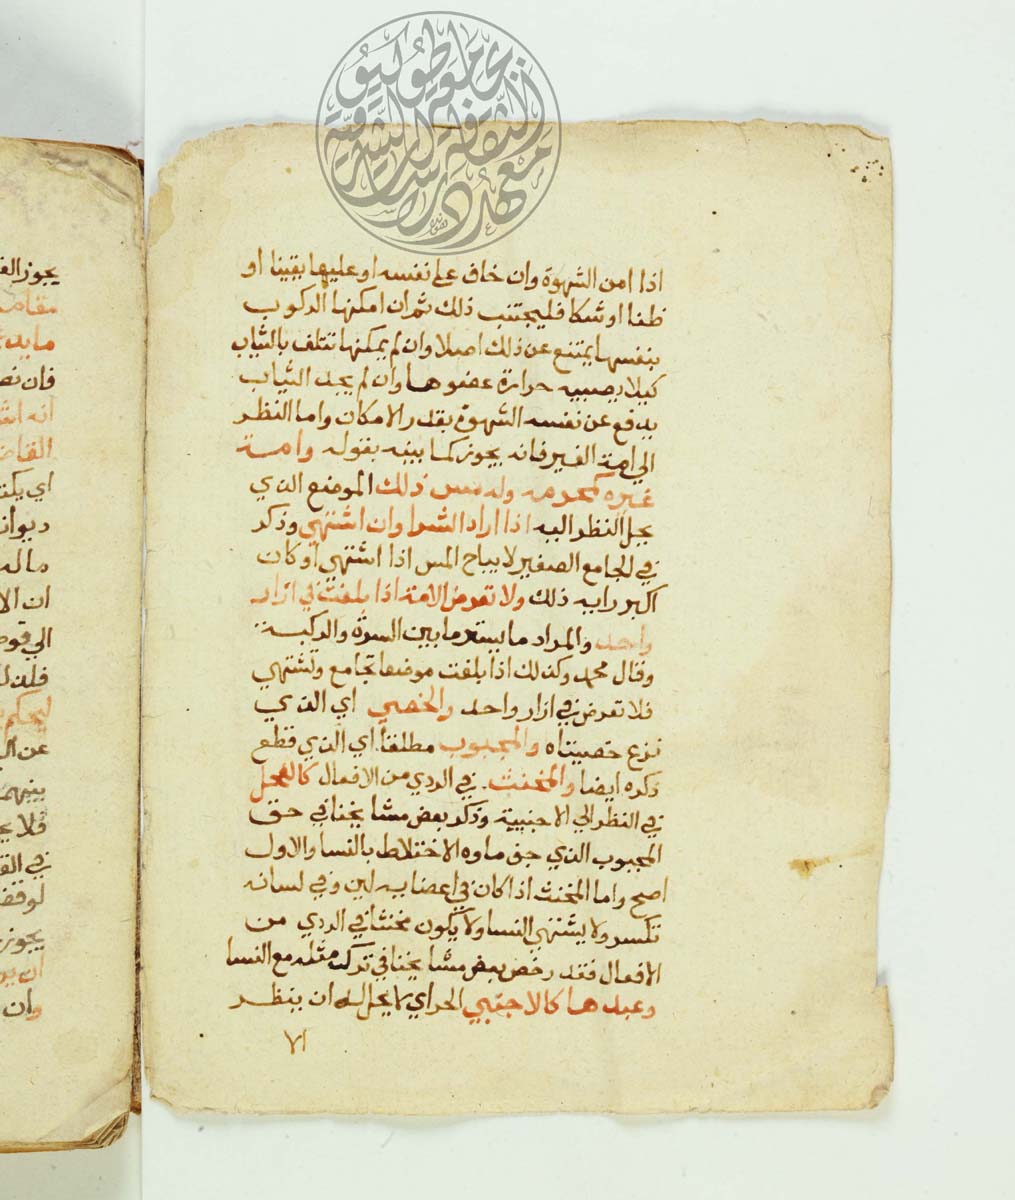 اذا امن الشهوة وان خاف على نفسه او عليها يقينا او
ظنا او شكا فليجتنب ذلك ثم ان امكنها الركوب
بنفسها يمتنع عن ذلك اصلا وان لم يمكنها تتلف بالثياب
كيلا يصيبه حرارة عضوها وان لم يجد الثياب
يدفع عن نفسه الشهوة بقدر الامكان واما النظر
الي امة الغير فانه يجوز كما بينه بقوله وامة
غيره كمحرمه وله مس ذلك الموضع الذي
يحل النظر اليه اذا اراد الشرا وان اشتهي وذكر
في الجامع الصغير لا يباح المس اذا اشتهي او كان
اكبر رايه ذلك ولا تعرض الامة اذا بلغت في ازار
واحد والمراد ما يستر ما بين السرة والركبة
وقال محمد وكذلك اذا بلغت موضعا تجامع وتشتهي
فلا تعرض في ازار واحد والخصي اي الذي
نزع خصيتاه والمجبوب مطلقا اي الذي قطع
ذكره ايضا والمخنث في الردي من الافعال كالفحل
في النظر الي الاجنبية وذكر بعض مشايخنا في حق
المجبوب الذي جف ماوه الاختلاط بالنسا والاول
اصح واما المخنث اذا كان في اعضايه لين وفي لسانه
تكسر ولا يشتهي النسا ولا يكون مخنثا في الردي من
الافعال فقد رخص بعض مشايخنا في ترك مثله مع النسا
وعبدها كالاجنبي الحر اي لا يحل له ان ينظر
يجوز
ما يد
فان
انه
القاض
اي
ماله
ان الا
ليحكم
فلا
في
يجوز
وان